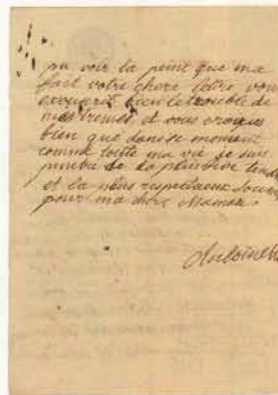 pu voir la peine que ma
fait votre chere lettre vous
excuserés bien le trouble de
et vous croyes
bien que dans ce moment
comme toute ma vie je suis
de la plus vive tend
et la plus respectueux Soum
pour ma chere Maman.
Antoinett